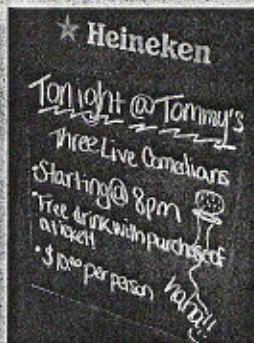 Heineken
Tonight @ Tommy's
Three Live Comedians
•Starting @ 8pm
•Free drink with purchase of
a ticket
•$10.00 per person
haha!!